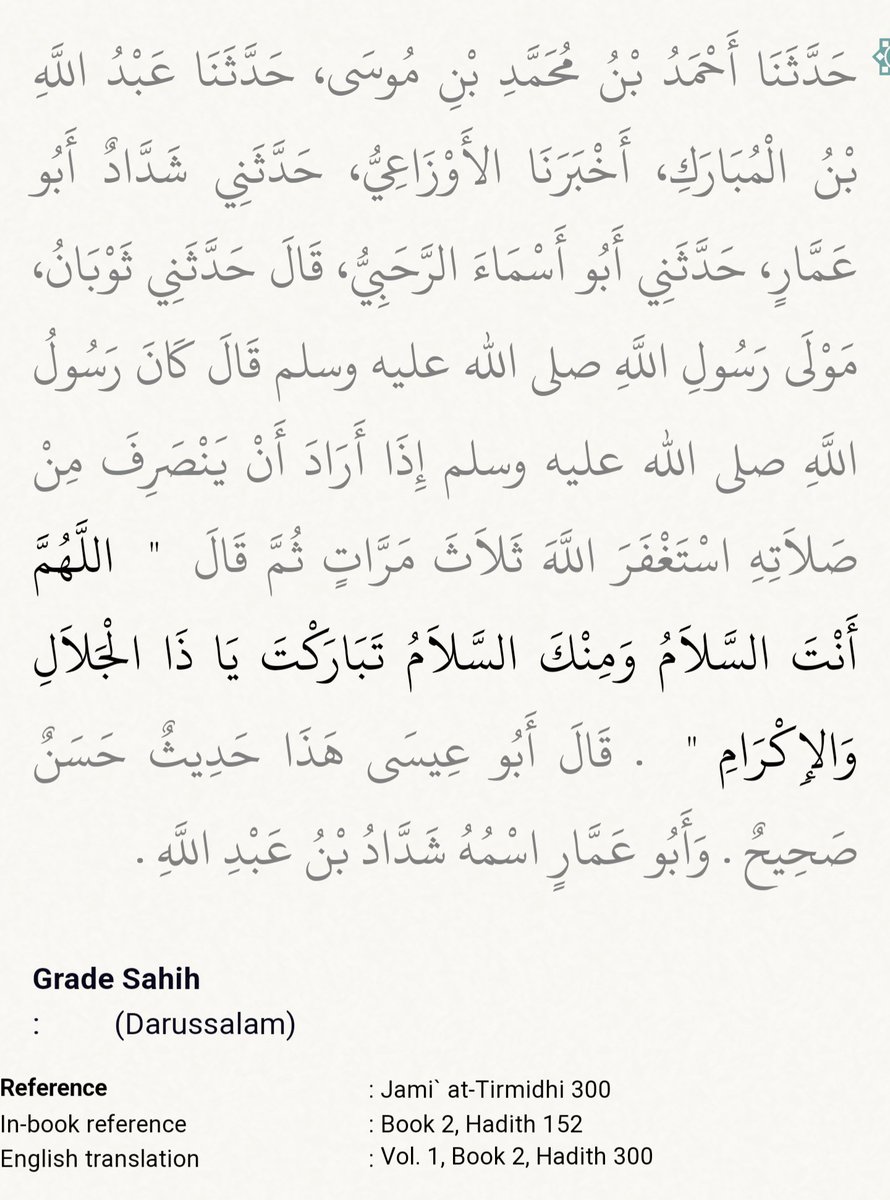 حَدَّثَنَا أَحْمَدُ بْنُ مُحَمَّدِ بْنِ مُوسَى، حَدَّثَنَا عَبْدُ اللَّهِ
بْنُ الْمُبَارَكِ، أَخْبَرَنَا الأَوْزَاعِيُّ، حَدَّثَنِي شَدَّادٌ أَبُو
عَمَّارٍ، حَدَّثَنِي أَبُو أَسْمَاءَ الرَّحَبِيُّ، قَالَ حَدَّثَنِي ثَوْبَانُ،
مَوْلَى رَسُولِ اللَّهِ صلى الله عليه وسلم قَالَ كَانَ رَسُولُ
اللَّهِ صلى الله عليه وسلم إِذَا أَرَادَ أَنْ يَنْصَرِفَ مِنْ
صَلاَتِهِ اسْتَغْفَرَ اللَّهَ ثَلاَثَ مَرَّاتٍ ثُمَّ قَالَ " اللَّهُمَّ
أَنْتَ السَّلاَمُ وَمِنْكَ السَّلاَمُ تَبَارَكْتَ يَا ذَا الْجَلاَلِ
وَالإِكْرَامِ " . قَالَ أَبُو عِيسَى هَذَا حَدِيثٌ حَسَنٌ
صَحِيحٌ . وَأَبُو عَمَّارٍ اسْمُهُ شَدَّادُ بْنُ عَبْدِ اللَّهِ .
Grade Sahih
: (Darussalam)
Reference : Jami` at-Tirmidhi 300
In-book reference : Book 2, Hadith 152
English translation : Vol. 1, Book 2, Hadith 300